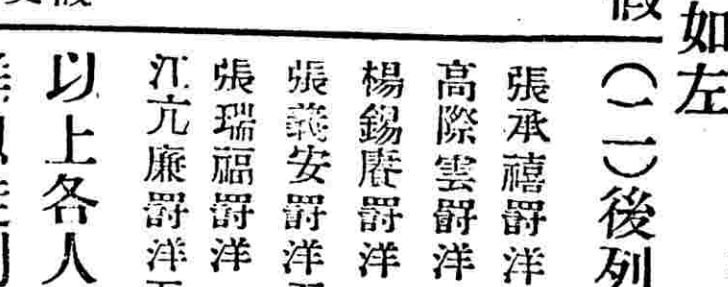 如左
(二)後列
張承禧罸洋
高際雲罸洋
楊錫赓罸洋
張義安罸洋
張瑞福罸洋
江亢廉罸洋
以上各人